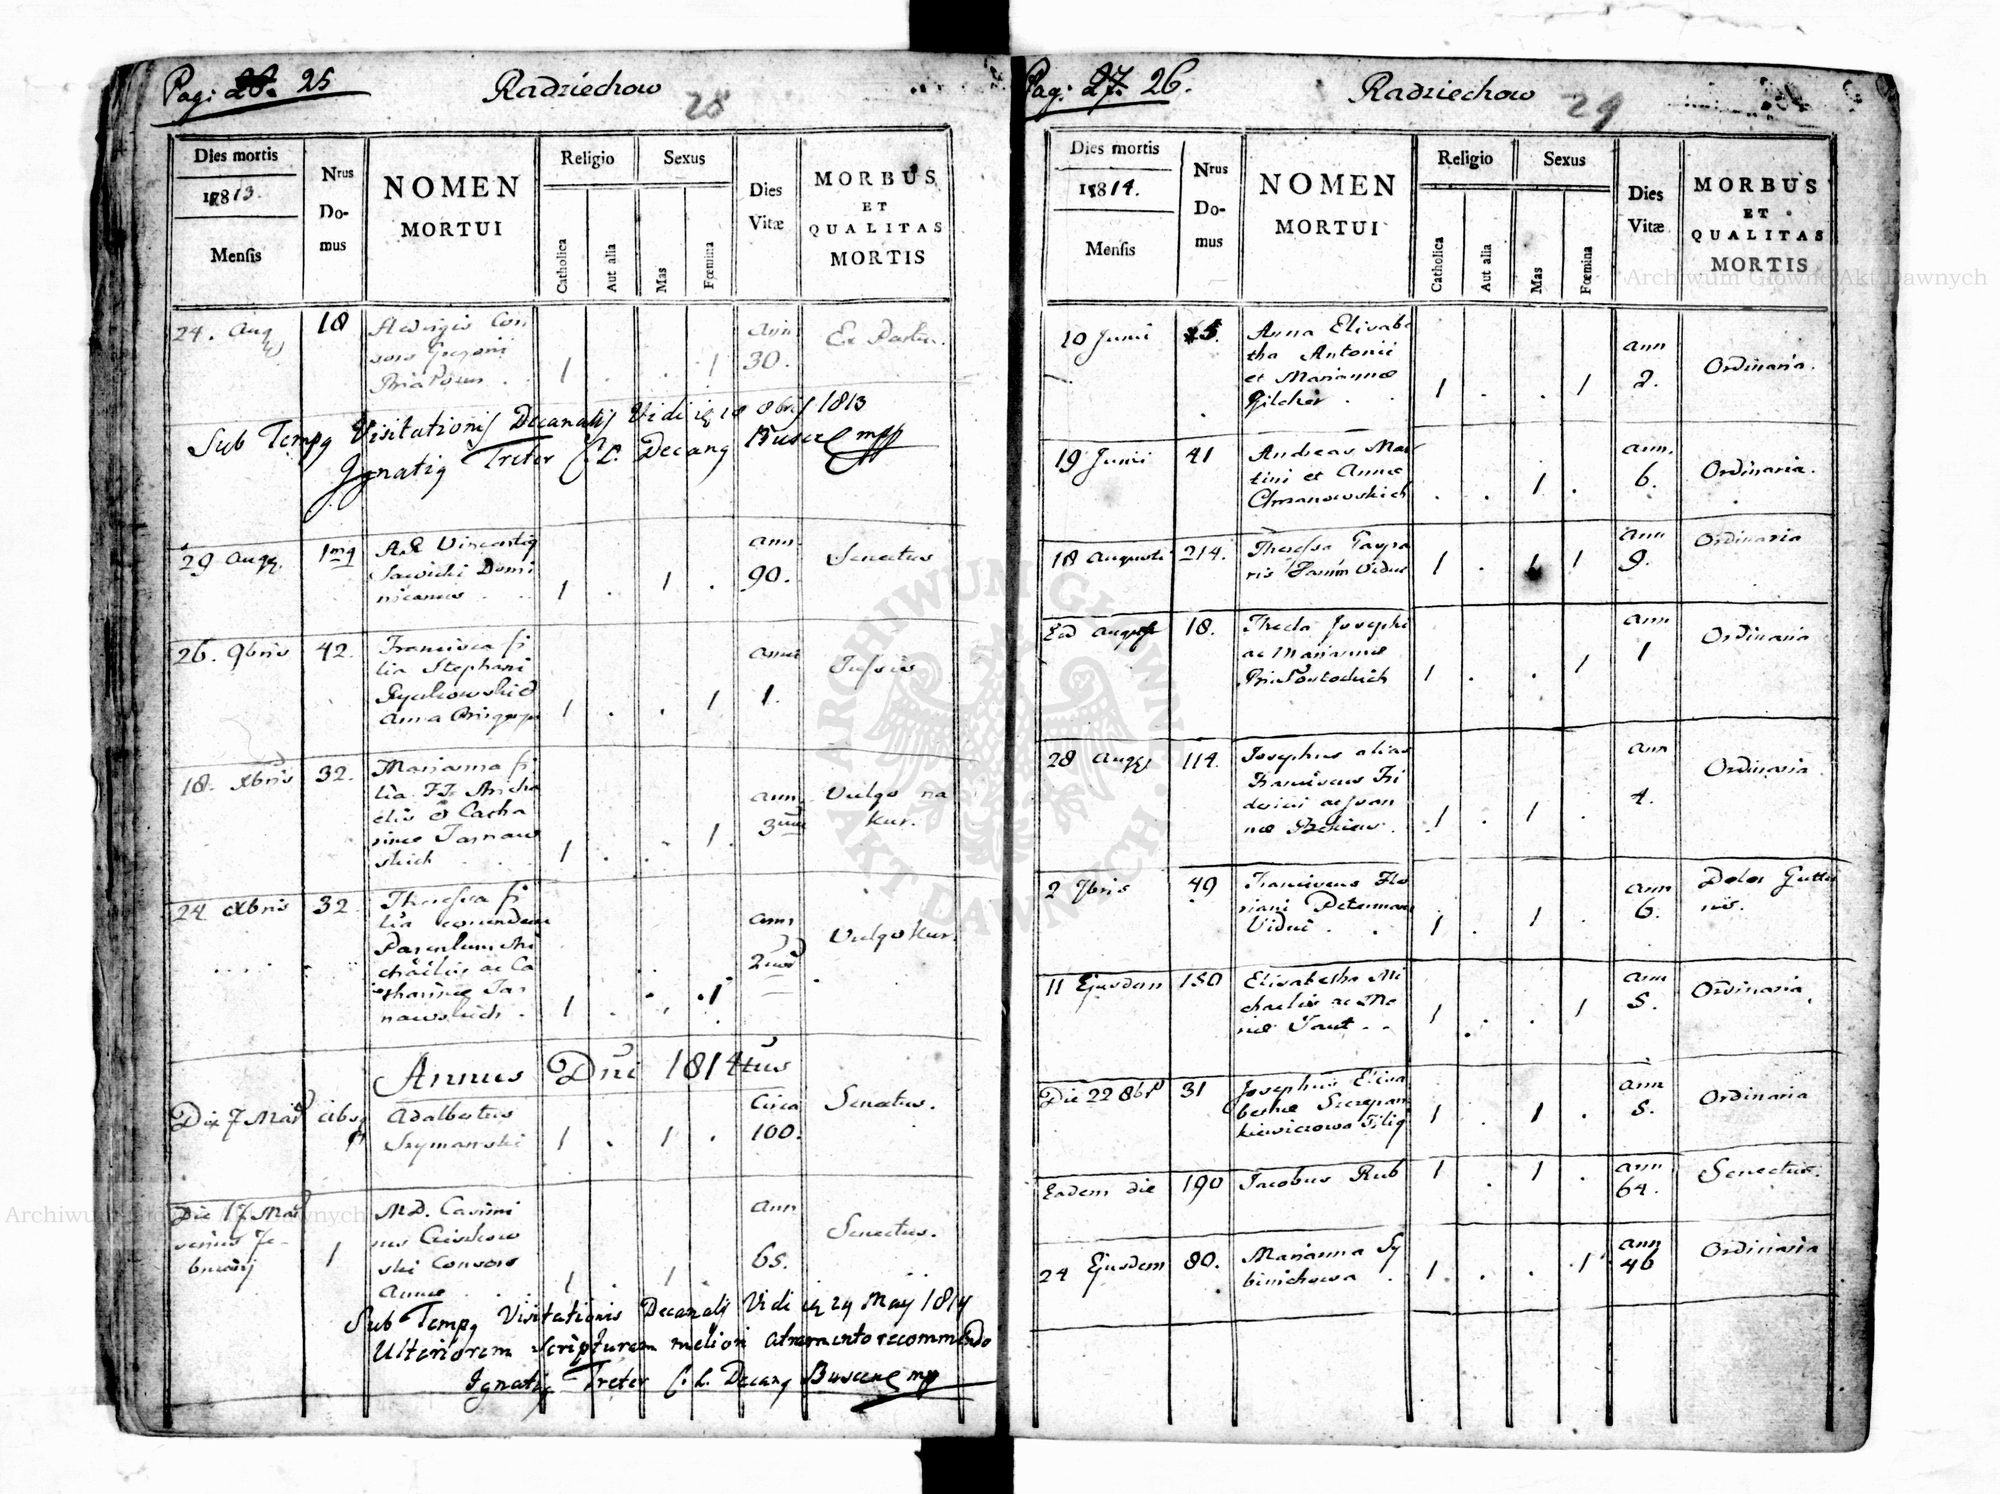 Pag: 25
Radziechow
28
Dies mortis
1813.
Mensis
Nrus
Do-
mus
NOMEN
MORTUI
Religio
Catholica
Aut alia
Sexus
Mas
Fœmina
Dies
Vitæ
MORBUS
ET
QUALITAS
MORTIS
24. Aug
18
Hedvigis Con
sors Gregorii
1 . . 1
ann
30.
Ex Partu.
Sub Tempq Visitationis Decanalis Vidi 18 8bris 1813
Ignatiq Treter C. L. Decanq Buscen mpp
29 Augq.
1mq
Vincentiq
Sawicki Domi
nicanus . .
1 . 1 .
ann
90.
Senectus
26. 9bris
42.
Francisca fi
lia Stephani
1 . . 1
anni
1.
Tussis
18. Xbris
32.
Marianna fi
lia Micha
elis Catha
rinæ Tarnaw
skich . . .
1 . . 1
ann
3um
Vulgo na
kur.
24 Xbris
32
Theressa fi
lia eorundem
Parentum Mi
chaelis ac Ca
tharinæ Tar
nawskich .
1 . . 1
ann
2um
Vulgo kur.
Annus Dni 1814tus
Die 7 Mar
Adalbertus
Szymanski
1 . 1 .
Circa
100.
Senectus.
Die 17 Mar
1
MD. Casimi
rus
ski Consors
Annæ
1 . 1 .
ann
65.
Senectus.
Sub Tempq Visitationis Decanalis Vidi 24 May 1814
Ulteriorem scripturam meliori atramento recommendo
Ignatiq Treter C. L. Decanq Buscen mpp
Pag: 27. 26.
Radziechow
29
Dies mortis
1814.
Mensis
Nrus
Do-
mus
NOMEN
MORTUI
Religio
Catholica
Aut alia
Sexus
Mas
Fœmina
Dies
Vitæ
MORBUS
ET
QUALITAS
MORTIS
10 Junii
Anna Elisabe
tha Antonii
et Mariannæ
Gilcher . .
1 . . 1
ann
2.
Ordinaria.
19 Junii
41
Andreas Mar
tini et Annæ
Chrzanowskich
. . 1 .
ann.
6.
Ordinaria.
18 Augusti
214.
Theressa Caspa
ris Vidua
1 . 1
ann
9.
Ordinaria
Ead August
18.
Thecla Josephi
ac Mariannæ
1 . . 1
ann
1
Ordinaria
28 Augq
114.
Josephus alias
Franciscus Fri
derici ac Joan
næ
1 . 1 .
ann
4.
Ordinaria
2 7bris
49
Franciscus Flo
riani Peterman
Vidui . .
1 . 1 .
ann
6.
Dolor Guttu
ris.
11 Ejusdem
150
Elisabetha Mi
chaelis ac Ma
riæ Taut . .
1 . . 1
ann
5.
Ordinaria.
Die 22 8br
31
Josephus Elisa
bethæ Szczepan
kiewiczowa Filiq
1 . 1 .
ann
5.
Ordinaria
Eadem die
190
Jacobus Rub
1 . 1 .
ann
64.
Senectus.
24 Ejusdem
80.
Marianna Sy
binichowa .
1 . . 1
ann
46
Ordinaria
Archiwum Główne Akt Dawnych
Archiwum Główne Akt Dawnych
ARCHIWUM GŁÓWNE AKT DAWNYCH